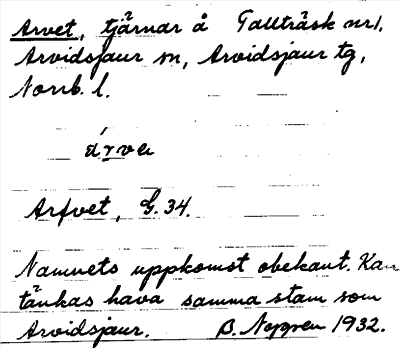 Arvet, tjärnar å Tallträsk nr 1,
Arvidsjaur sn, Arvidsjaur tg,
Norrb. l.
árva
Arfvet, G. 34.
Namnets uppkomst obekant. Kan
tänkas hava samma stam som
Arvidsjaur. B. 1932.